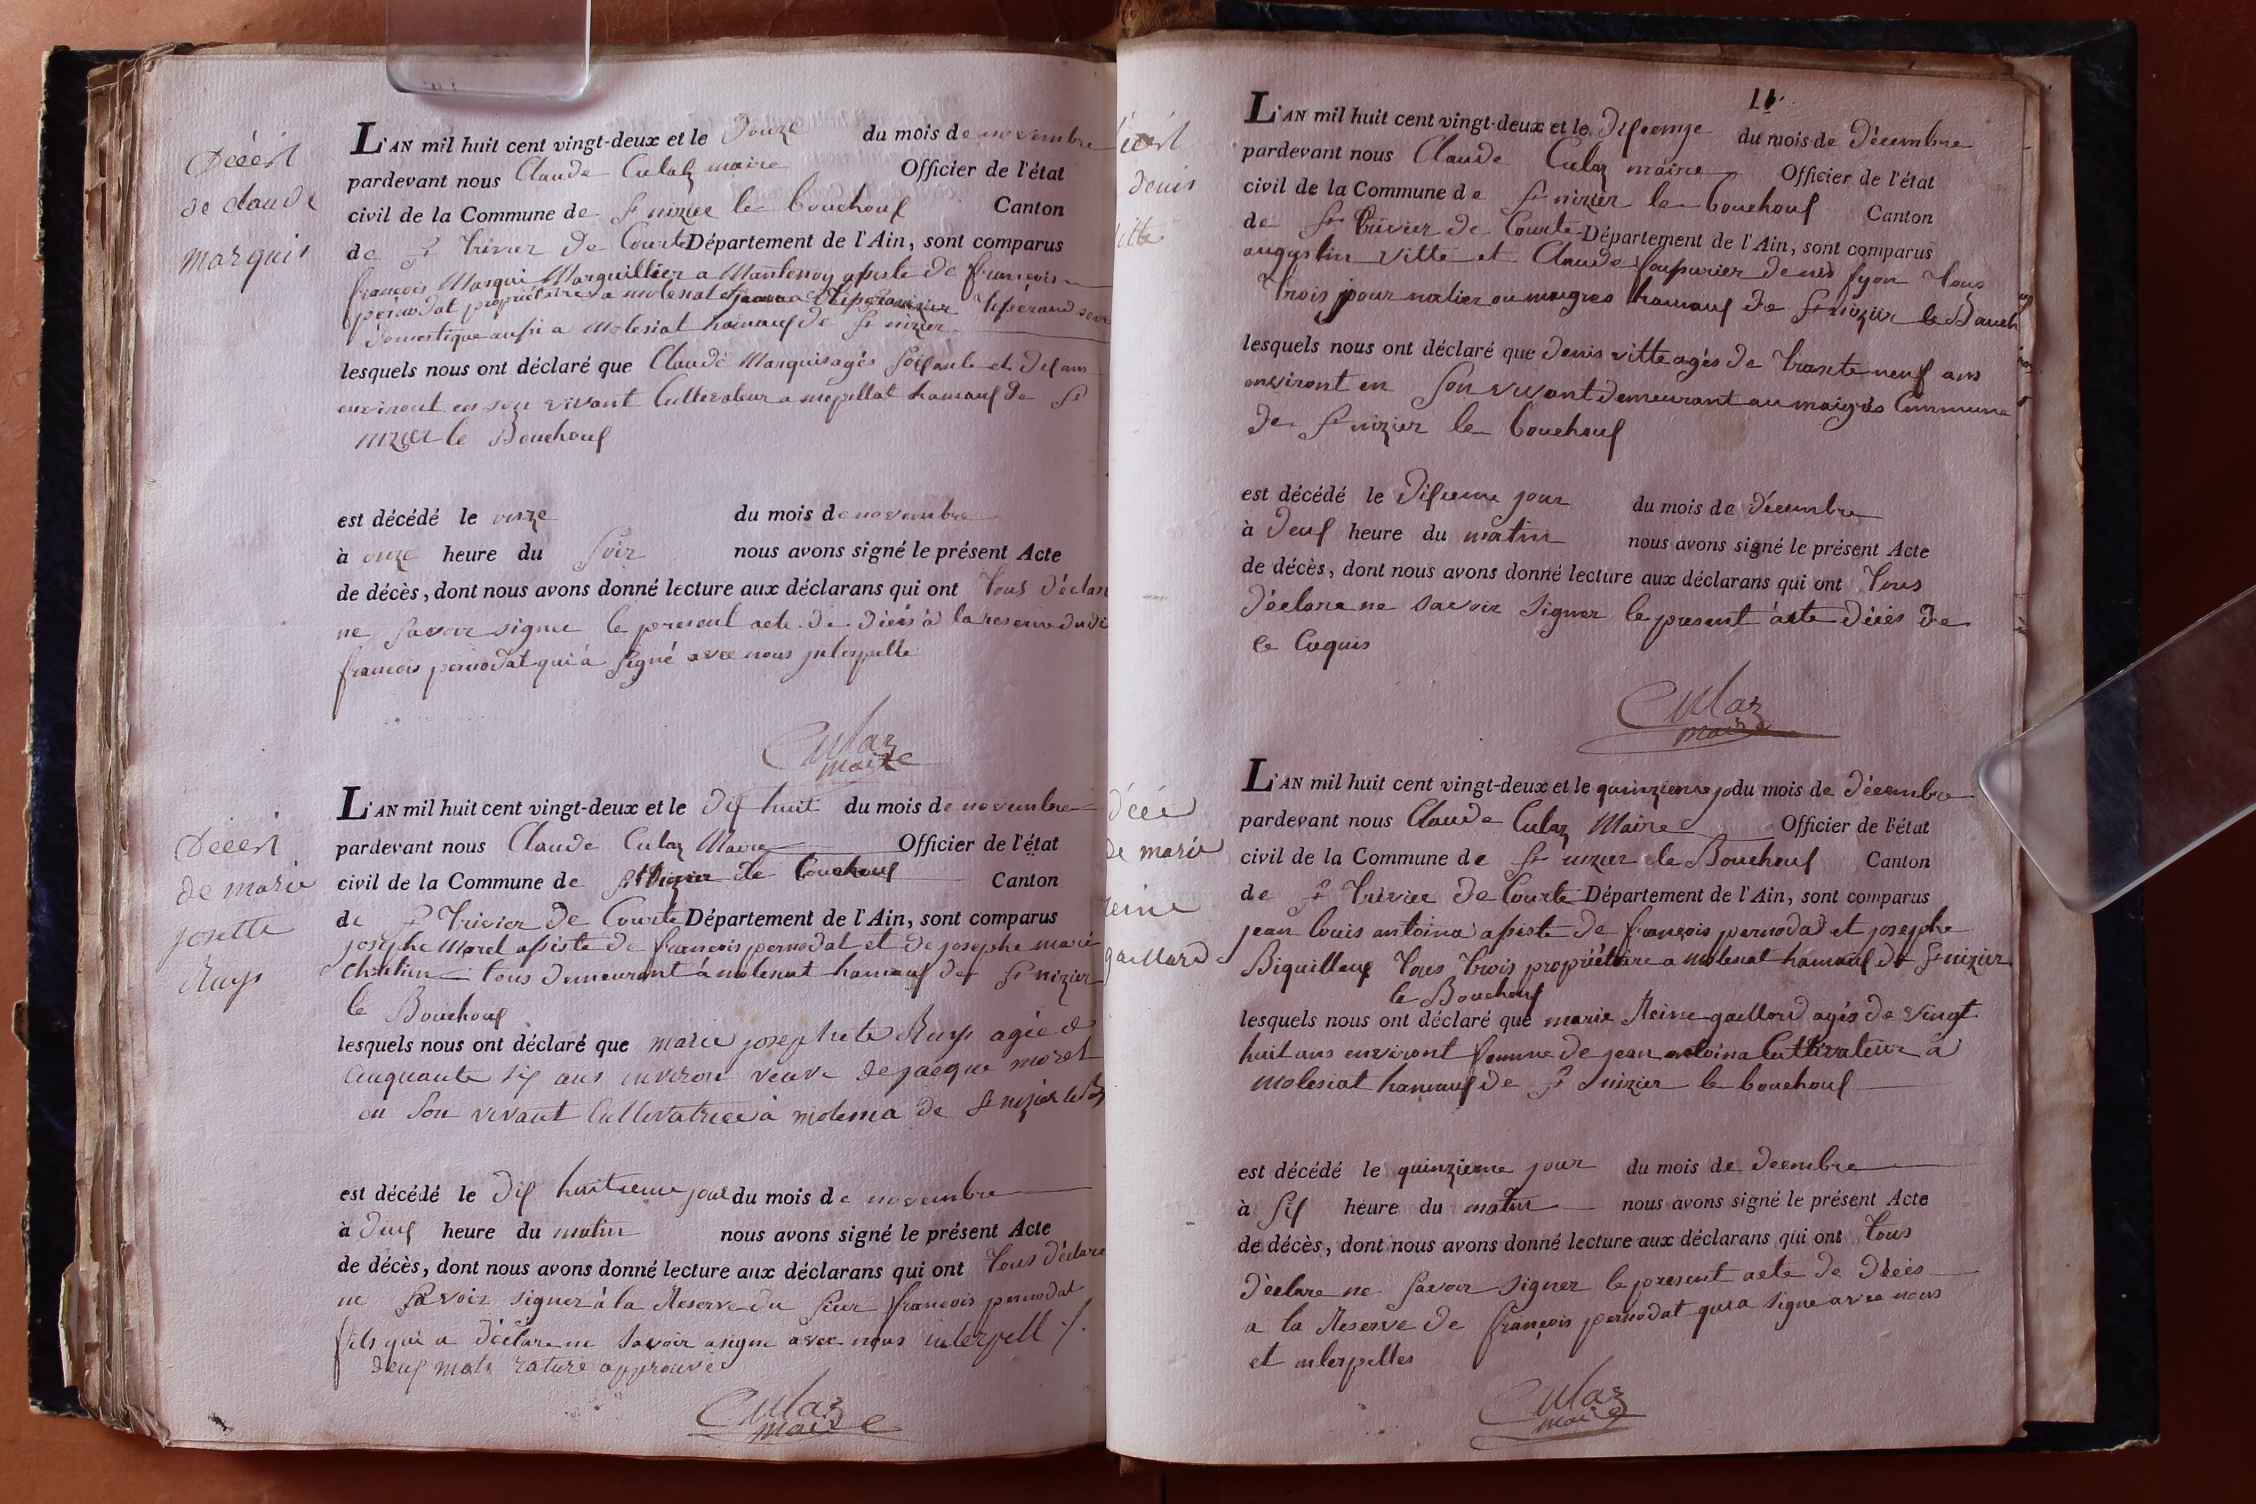 Décést
de claude
marquis
L'AN mil huit cent vingt-deux et le Douze du mois de novembre
pardevant nous Claude Culaz maire Officier de l'état
civil de la Commune de St nizier le bouchouf Canton
de St trivier de Courte Département de l'Ain, sont comparus
françois Marqui Marguillier a Mantenay assisté de françois
pernodat propriétaire a molesiat et
Domestique aussi a Molesiat hamauf de St nizier
lesquels nous ont déclaré que Claude Marquis agés soissante et dis ans
environt en son vivant Cultivateur a hamauf de St
nizier le Bouchouf
est décédé le onze du mois de novembre
à onze heure du soir nous avons signé le présent Acte
de décès, dont nous avons donné lecture aux déclarans qui ont tous déclare
ne savoir signer le present acte de décès à la reserve dudi
françois pernodat qui à signé avec nous interpelle
Culaz
maire
Décést
de marie
josette
Ruys
L'AN mil huit cent vingt-deux et le dix huit du mois de novembre
pardevant nous Claude Culaz Maire Officier de l'état
civil de la Commune de St Nizier le bouchouf Canton
de St trivier de Courte Département de l'Ain, sont comparus
josephe Morel assiste de françois pernodat et de josephe marie
tous demeurant à molesiat hamauf de St nizier
le Bouchouf
lesquels nous ont déclaré que marie josephete Ruys agée de
cinquante six ans environt veuve de jacque morel
en son vivant Cultivatrice à de St nizier le B
est décédé le dix huitieme jour du mois de novembre
à deuf heure du matin nous avons signé le présent Acte
de décès, dont nous avons donné lecture aux déclarans qui ont tous déclare
ne savoir signer à la Reserve du sieur françois pernodat
fils qui a déclare ne savoir a signe avec nous interpell ./.
deuf mots rature approuvé
Culaz
maire
11
Décést
denis
vitte
L'AN mil huit cent vingt-deux et le du mois de Décembre
pardevant nous Claude Culaz maire Officier de l'état
civil de la Commune de St nizier le bouchouf Canton
de St trivier de Courte Département de l'Ain, sont comparus
augustin vitte et Claude denis fyon tous
trois journalier ou maigres hamauf de St nizier le Bouch
lesquels nous ont déclaré que denis vitte agés de trante neuf ans
environt en son vivant demeurant au maigres Commune
de St nizier le bouchouf
est décédé le jour du mois de Décembre
à deuf heure du matin nous avons signé le présent Acte
de décès, dont nous avons donné lecture aux déclarans qui ont tous
déclare ne savoir signer le present acte décès de
ce requis
Culaz
maire
décé
de marie
reine
gaillard
L'AN mil huit cent vingt-deux et le quinzieme jo du mois de Décembre
pardevant nous Claude Culaz Maire Officier de l'état
civil de la Commune de St nizier le Bouchouf Canton
de St trivier de Courte Département de l'Ain, sont comparus
jean louis antoina assiste de françois pernodat et josephe
tous trois propriétaire a molesiat hamauf de St nizier
le Bouchouf
lesquels nous ont déclaré que marie Reine gaillard agés de vingt
huit ans environt femme de jean antoina Cultivateur à
molesiat hamauf de St nizier le bouchouf
est décédé le quinzieme jour du mois de decembre
à sif heure du matin nous avons signé le présent Acte
de décès, dont nous avons donné lecture aux déclarans qui ont tous
déclare ne savoir signer le present acte de décés
a la Reserve de françois pernodat qui a signe avec nous
et interpelles
Culaz
maire